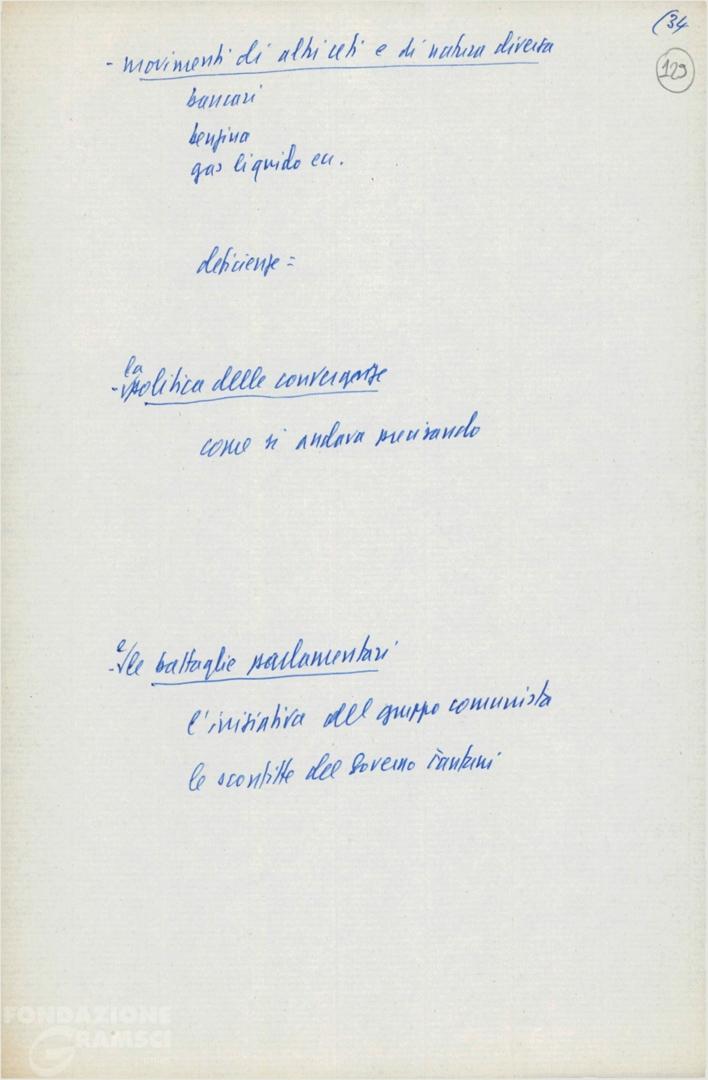 (34
129
- movimenti di altri ceti e di natura diversa
bancari
benzina
gas liquido ecc.
deficienze =
- la politica delle convergenze
come si andava precisando
- e le battaglie parlamentari
l'iniziativa del gruppo comunista
le sconfitte del Governo Fanfani
FONDAZIONE
GRAMSCI